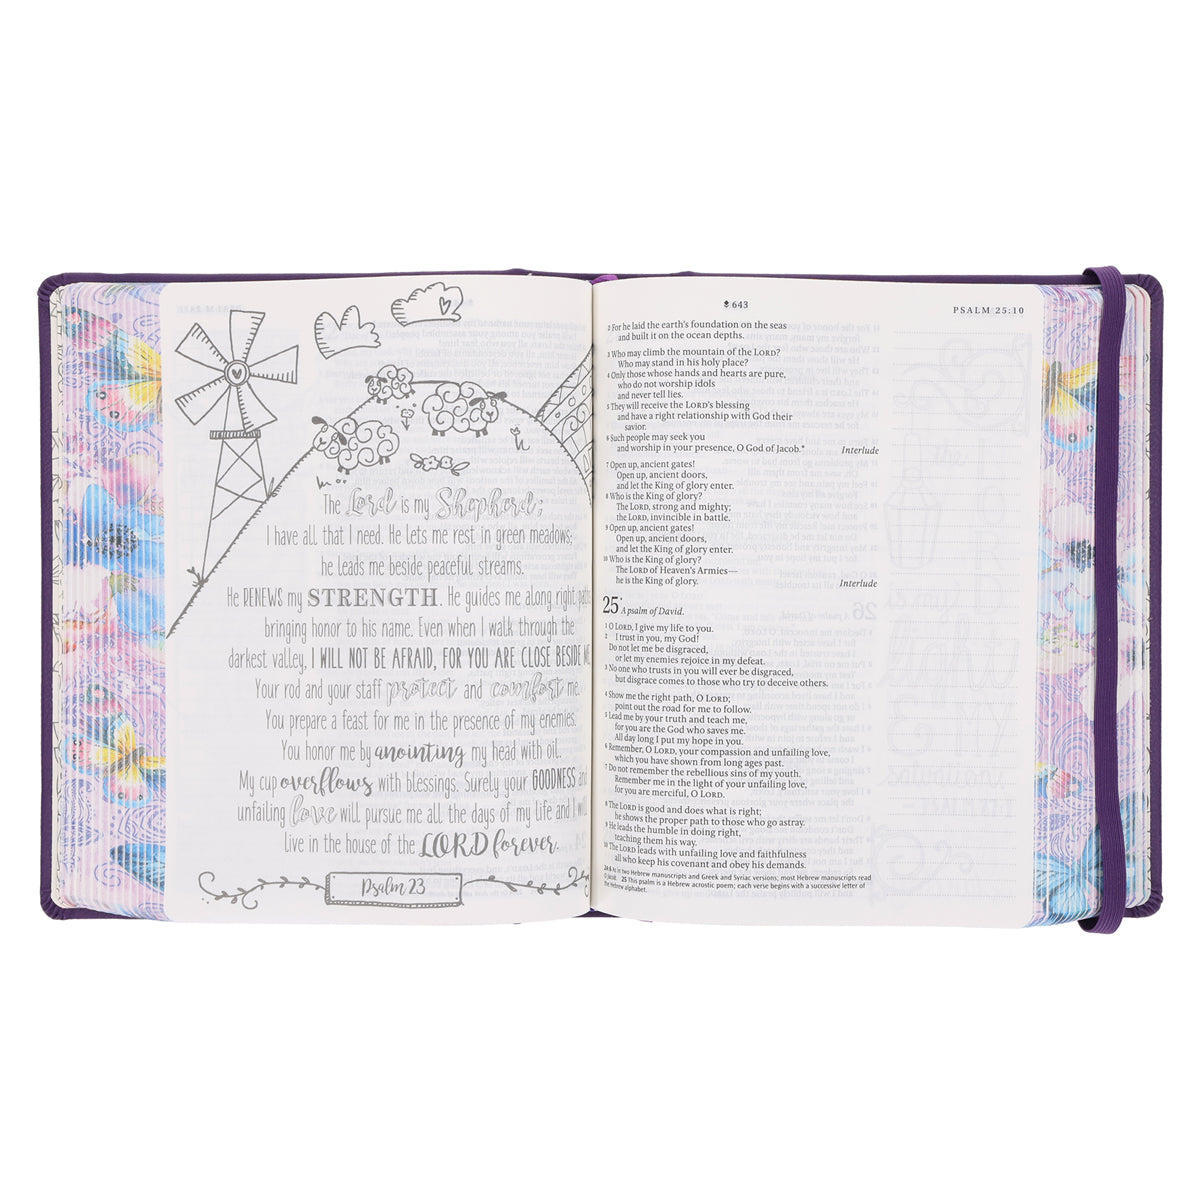 The Lord is my Shepherd;
I have all that I need. He lets me rest in green meadows;
he leads me beside peaceful streams.
He RENEWS my STRENGTH. He guides me along right paths,
bringing honor to his name. Even when I walk through the
darkest valley, I WILL NOT BE AFRAID, FOR YOU ARE CLOSE BESIDE ME.
Your rod and your staff protect and comfort me.
You prepare a feast for me in the presence of my enemies.
You honor me by anointing my head with oil.
My cup overflows with blessings. Surely your GOODNESS and
unfailing love will pursue me all the days of my life and I will
live in the house of the LORD forever.
Psalm 23
643
PSALM 25:10
2 For he laid the earth's foundation on the seas
and built it on the ocean depths.
3 Who may climb the mountain of the LORD?
Who may stand in his holy place?
4 Only those whose hands and hearts are pure,
who do not worship idols
and never tell lies.
5 They will receive the LORD's blessing
and have a right relationship with God their
savior.
6 Such people may seek you
and worship in your presence, O God of Jacob.* Interlude
7 Open up, ancient gates!
Open up, ancient doors,
and let the King of glory enter.
8 Who is the King of glory?
The LORD, strong and mighty;
the LORD, invincible in battle.
9 Open up, ancient gates!
Open up, ancient doors,
and let the King of glory enter.
10 Who is the King of glory?
The LORD of Heaven's Armies—
he is the King of glory. Interlude
25* A psalm of David.
1 O LORD, I give my life to you.
2 I trust in you, my God!
Do not let me be disgraced,
or let my enemies rejoice in my defeat.
3 No one who trusts in you will ever be disgraced,
but disgrace comes to those who try to deceive others.
4 Show me the right path, O LORD;
point out the road for me to follow.
5 Lead me by your truth and teach me,
for you are the God who saves me.
All day long I put my hope in you.
6 Remember, O LORD, your compassion and unfailing love,
which you have shown from long ages past.
7 Do not remember the rebellious sins of my youth.
Remember me in the light of your unfailing love,
for you are merciful, O LORD.
8 The LORD is good and does what is right;
he shows the proper path to those who go astray.
9 He leads the humble in doing right,
teaching them his way.
10 The LORD leads with unfailing love and faithfulness
all who keep his covenant and obey his demands.
24:6 As in two Hebrew manuscripts and Greek and Syriac versions; most Hebrew manuscripts read
O Jacob. 25 This psalm is a Hebrew acrostic poem; each verse begins with a successive letter of
the Hebrew alphabet.